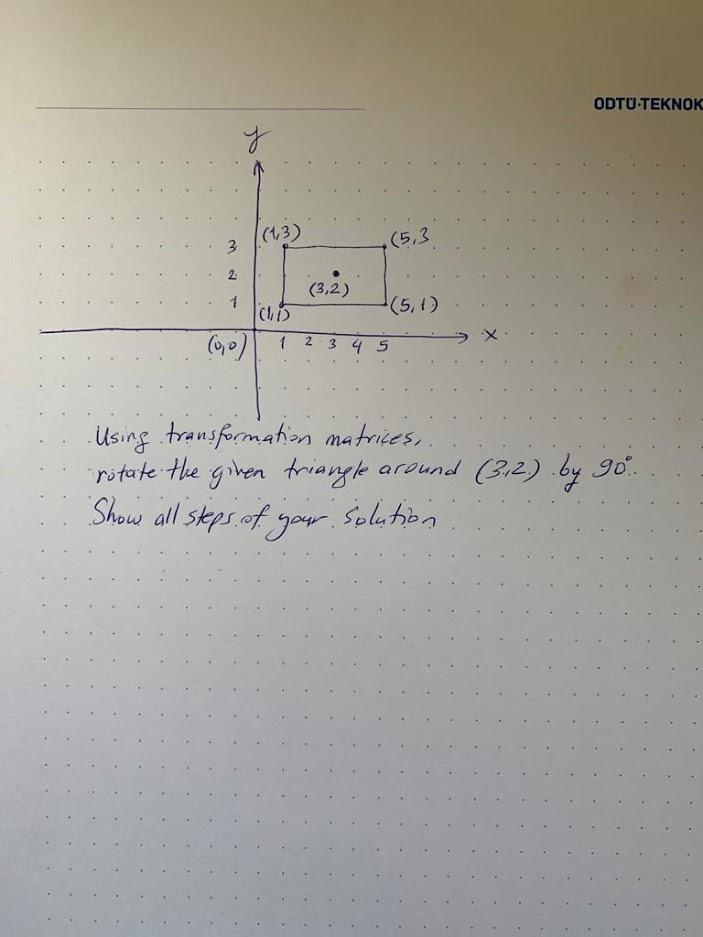 ODTÜ·TEKNOK
y
(1,3)
(5,3
3
2
(3,2)
1
(1,1)
(5,1)
(0,0)
1 2 3 4 5
x
Using transformation matrices,
rotate the given triangle around (3,2) by 90°.
Show all steps of your solution